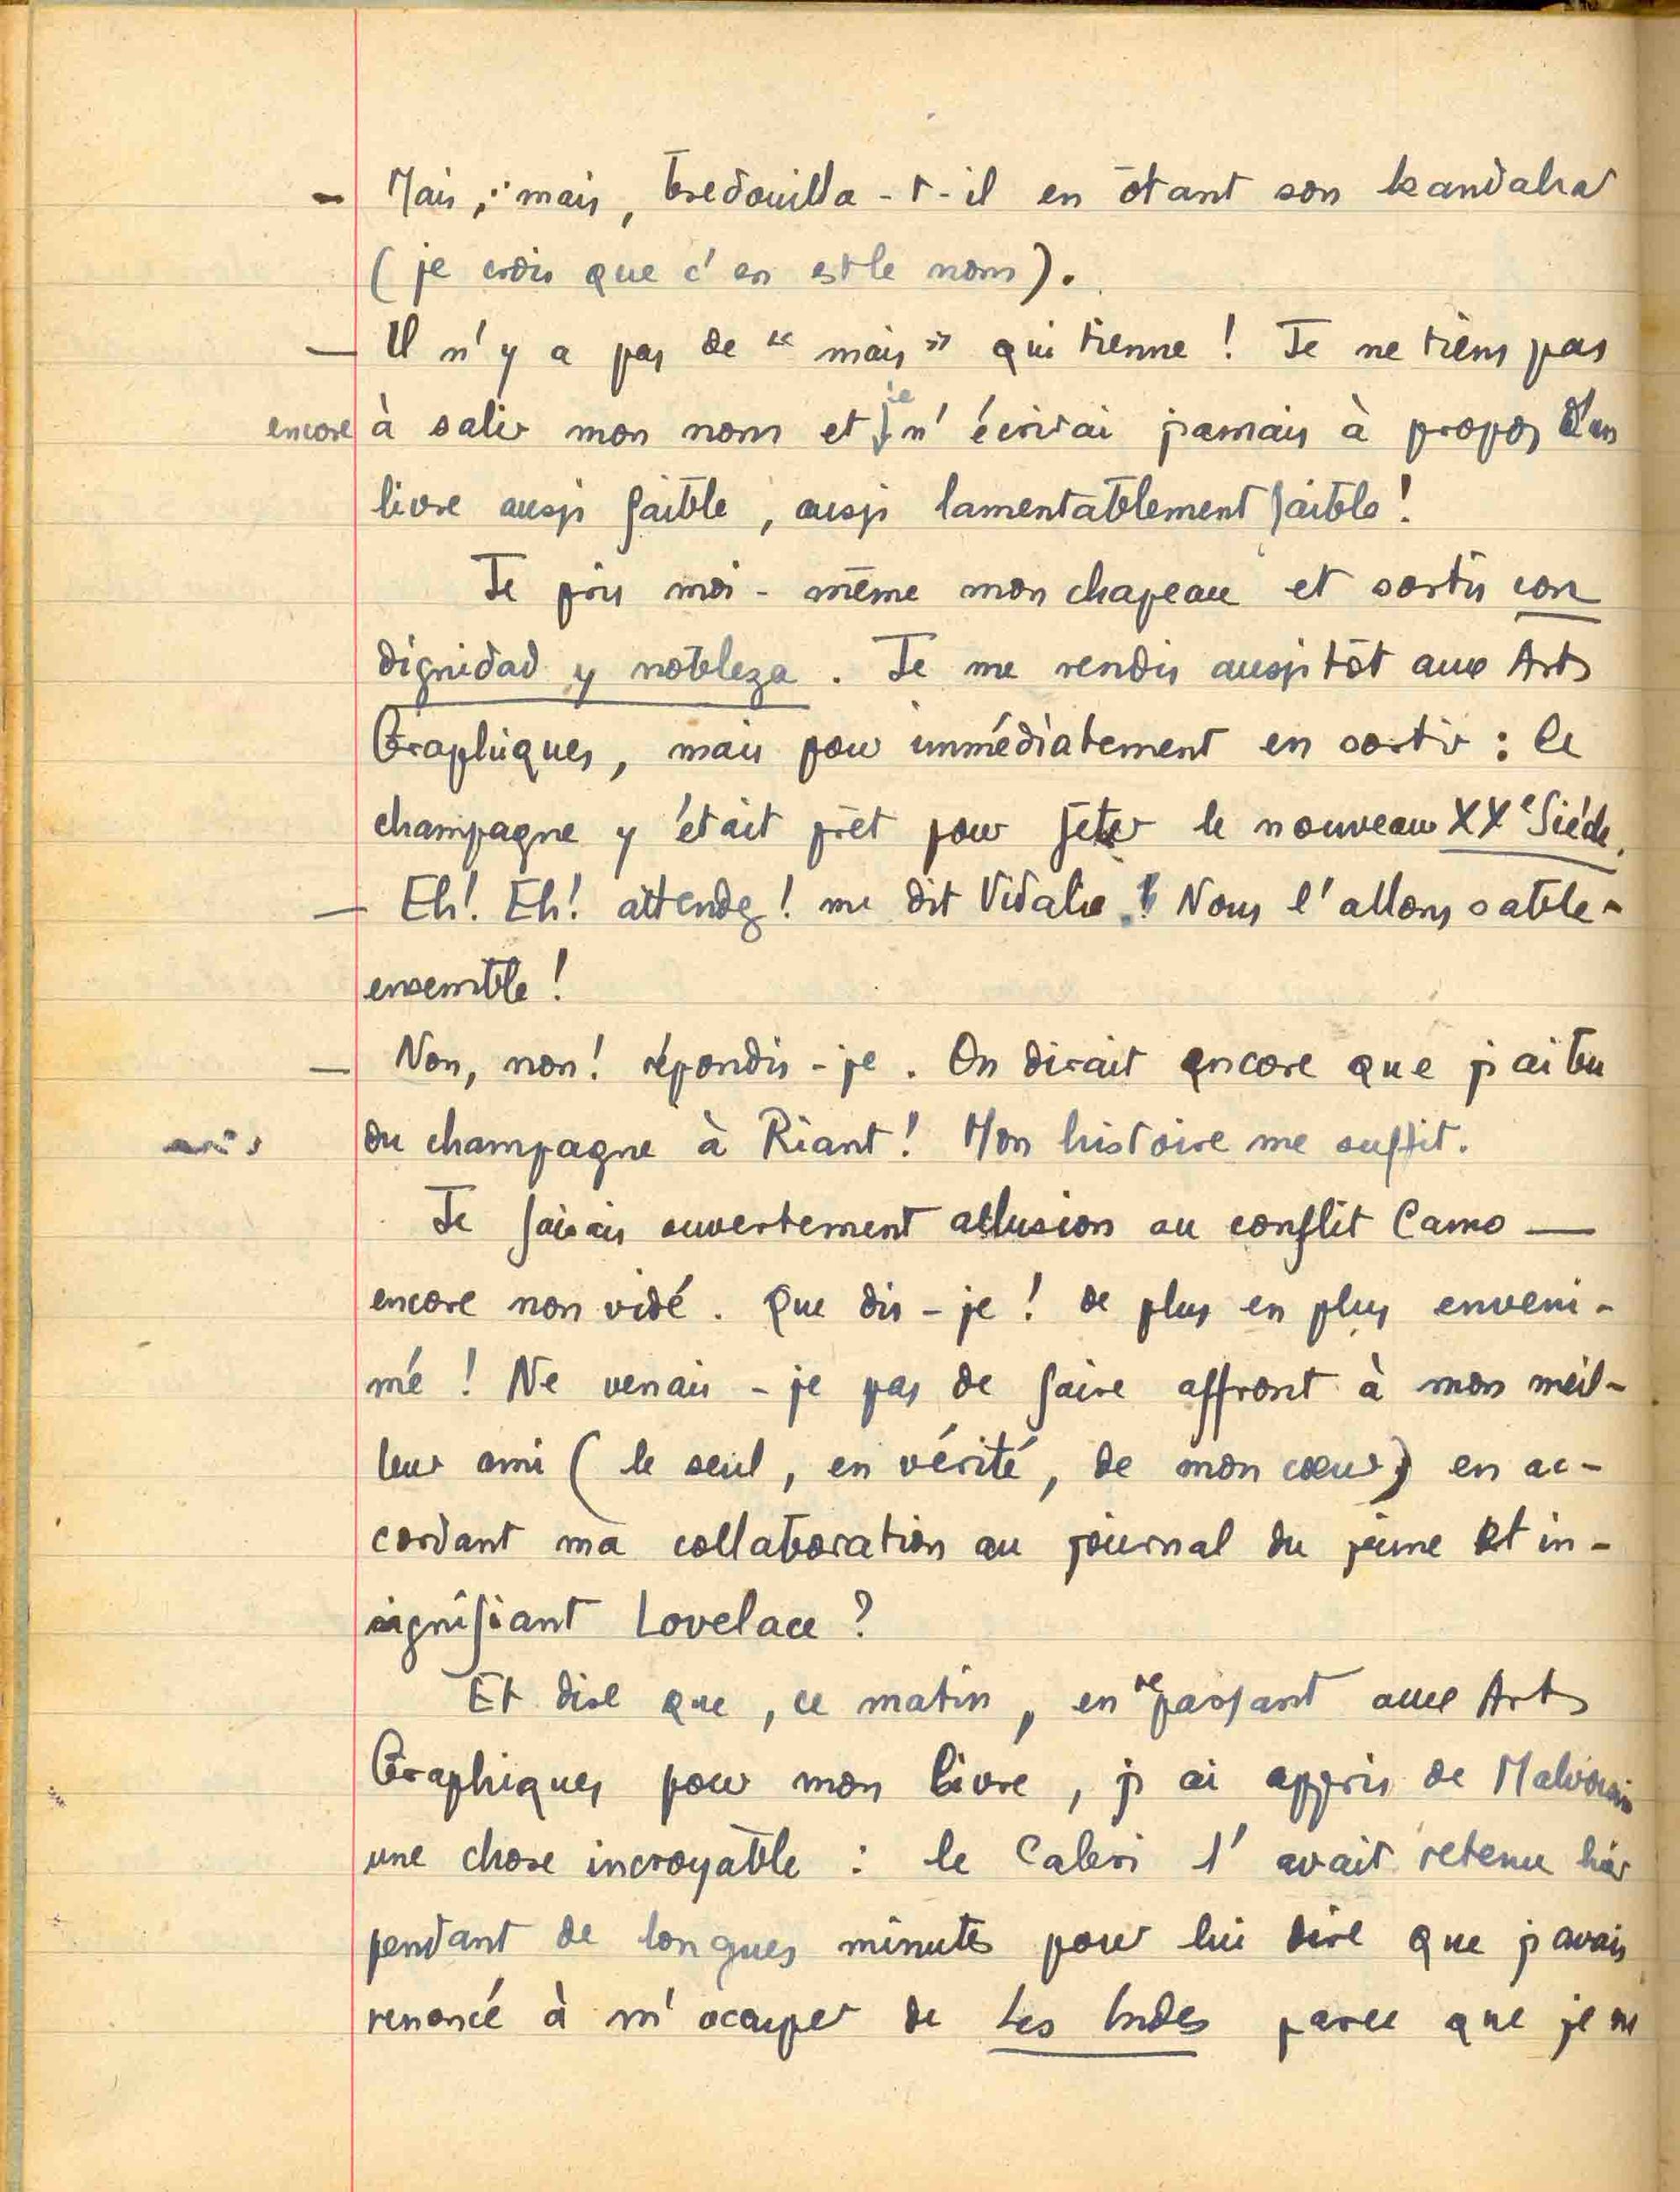 — Mais,.. mais, bredouilla-t-il en ôtant son kandahar
(je crois que c'en est le nom).
— Il n'y a pas de "mais" qui tienne ! Je ne tiens pas
encore à salir mon nom et je n'écrirai jamais à propos d'un
livre aussi faible, aussi lamentablement faible !
Je pris moi-même mon chapeau et sortis con
dignidad y nobleza. Je me rendis aussitôt aux Arts
Graphiques, mais pour immédiatement en sortir : le
champagne y était prêt pour fêter le nouveau XXe Siècle.
— Eh ! Eh ! attendez ! me dit Vidalie ! Nous l'allons sabler
ensemble !
— Non, non ! répondis-je. On dirait encore que j'ai bu
du champagne à Riant ! Mon histoire me suffit.
Je faisais ouvertement allusion au conflit Camo —
encore non vidé. Que dis-je ! de plus en plus enveni-
mé ! Ne venais-je pas de faire affront à mon meil-
leur ami (le seul, en vérité, de mon cœur) en ac-
cordant ma collaboration au journal du jeune et in-
signifiant Lovelace ?
Et dire que, ce matin, en repassant aux Arts
Graphiques pour mon livre, j'ai appris de
une chose incroyable : le Cabri l'avait retenu hier
pendant de longues minutes pour lui dire que j'avais
renoncé à m'occuper de Les Indes parce que je ne